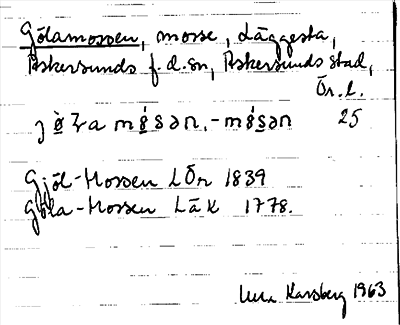 Gölamossen, mosse, Läggesta,
Askersunds f.d. sn, Askersunds stad,
Ör. l.
jø̀ɫa mø̀sən, -mø̀sən 25
Gjöl-Mossen LÖr 1839
Göla-Mossen LäK 1778.
Karsberg 1963